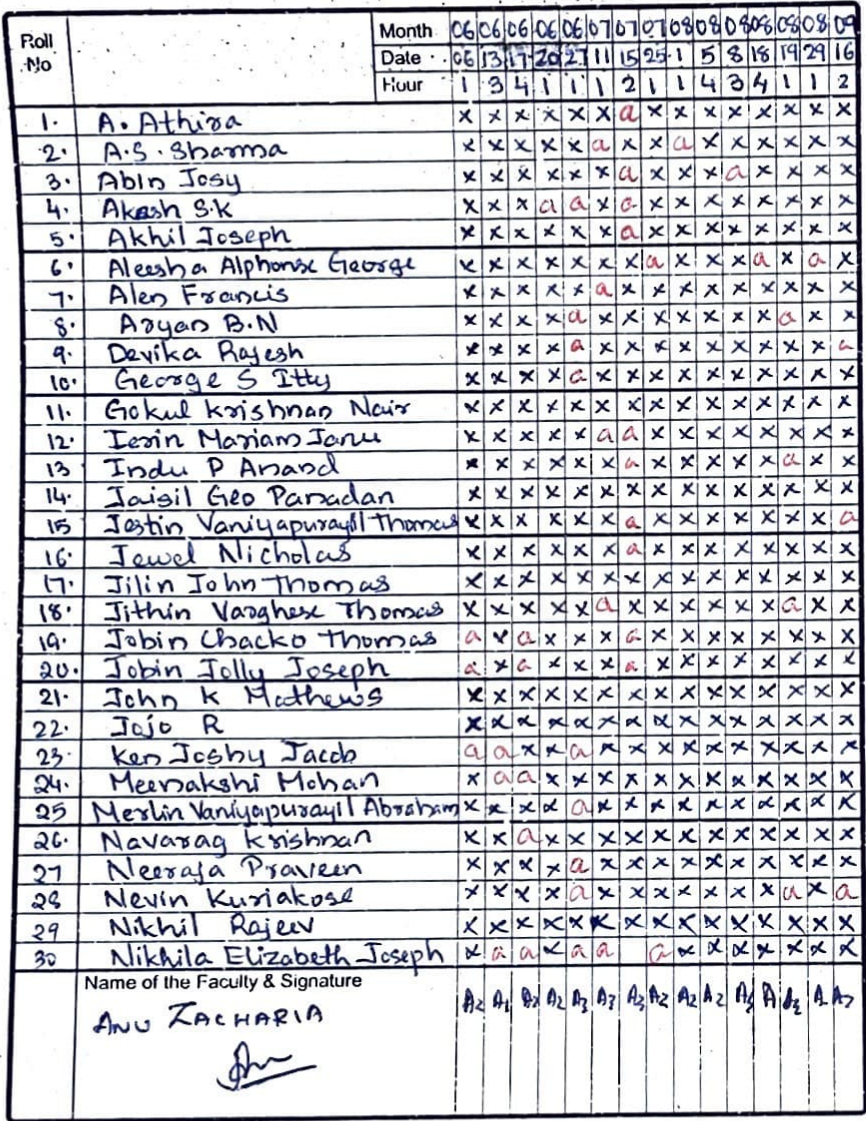 Roll No Month 06 06 06 06 06 07 07 07 08 08 08 08 08 08 09
Date 06 13 17 20 27 11 15 25 1 5 8 18 19 29 16
Hour 1 3 4 1 1 1 2 1 1 4 3 4 1 1 2
1. A. Athira x x x x x x a x x x x x x x x
2. A.S. Sharma x x x x x a x x a x x x x x x
3. Abin Josy x x x x x x a x x x a x x x x
4. Akash S.K x x x a a x a x x x x x x x x
5. Akhil Joseph x x x x x x a x x x x x x x x
6. Aleesha Alphonse George x x x x x x x a x x x a x a x
7. Alen Francis x x x x x a x x x x x x x x x
8. Aryan B.N x x x x a x x x x x x x a x x
9. Devika Rajesh x x x x a x x x x x x x x x a
10. George S Itty x x x x a x x x x x x x x x x
11. Gokul Krishnan Nair x x x x x x x x x x x x x x x
12. Ierin Mariam Janu x x x x x a a x x x x x x x x
13 Indu P Anand x x x x x x a x x x x x a x x
14. Jaisil Geo Panadan x x x x x x x x x x x x x x x
15 Jestin Vaniyapurayil Thomas x x x x x x a x x x x x x x a
16. Jewel Nicholas x x x x x x a x x x x x x x x
17. Jilin John Thomas x x x x x x x x x x x x x x x
18. Jithin Varghese Thomas x x x x x a x x x x x x a x x
19. Jobin Chacko Thomas a x a x x x a x x x x x x x x
20. Jobin Jolly Joseph a x a x x x a x x x x x x x x
21. John K Mathews x x x x x x x x x x x x x x x
22. Jojo R x x x x x x x x x x x x x x x
23. Ken Josby Jacob a a x x a x x x x x x x x x x
24. Meenakshi Mohan x a a x x x x x x x x x x x x
25 Merlin Vaniyapurayil Abraham x x x x a x x x x x x x x x x
26. Navarag Krishnan x x a x x x x x x x x x x x x
27 Neeraja Praveen x x x x a x x x x x x x x x x
28 Nevin Kuriakose x x x x a x x x x x x x a x a
29 Nikhil Rajeev x x x x x x x x x x x x x x x
30 Nikhila Elizabeth Joseph x a a x a a a x x x x x x x
Name of the Faculty & Signature
ANU ZACHARIA